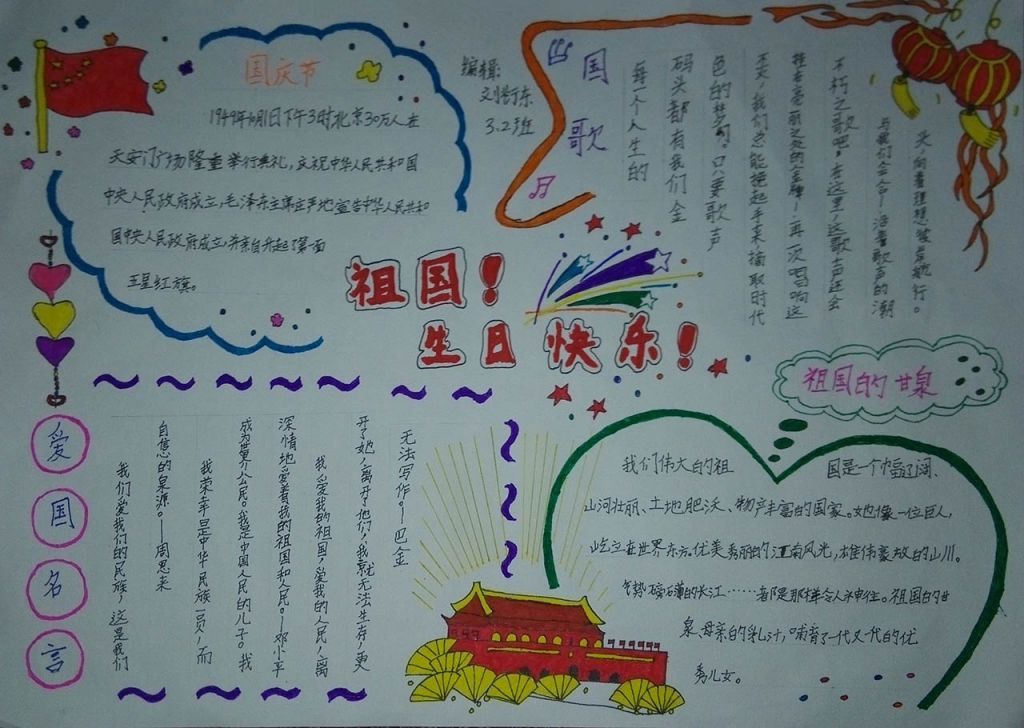 国庆节
1949年10月1日下午3时北京30万人在
天安门广场隆重举行典礼,庆祝中华人民共和国
中央人民政府成立,毛泽东主席庄严地宣告中华人民共和
国中央人民政府成立,并亲自升起了第一面
五星红旗。
编辑:
刘衍东
3.2班
国歌
每一个人生的
码头都有我们金
色的梦。只要歌声
不灭,我们总能挽起手来摘取时代
挂在亮丽之处的金牌!再一次唱响这
不朽之歌吧,在这里,这歌声还会
与我们会合——沿着歌声的潮
头,向着理想彼岸航行。
祖国!
生日快乐!
爱国名言
我们爱我们的民族,这是我们
自信的泉源。——周恩来
我荣幸是中华民族一员,而
成为世界公民。我是中国人民的儿子。我
深情地爱着我的祖国和人民。—邓小平
我爱我的祖国,爱我的人民,离
开了她,离开了他们,我就无法生存,更
无法写作。—巴金
祖国的甘泉
我们伟大的祖国是一个幅辽阔、
山河壮丽、土地肥沃、物产丰富的国家。她像一位巨人,
屹立在世界东方。优美秀丽的江南风光,雄伟豪放的山川。
气势磅礴的长江……都是那样令人神往。祖国的甘
泉,母亲的乳汁,哺育了一代又一代的优
秀儿女。